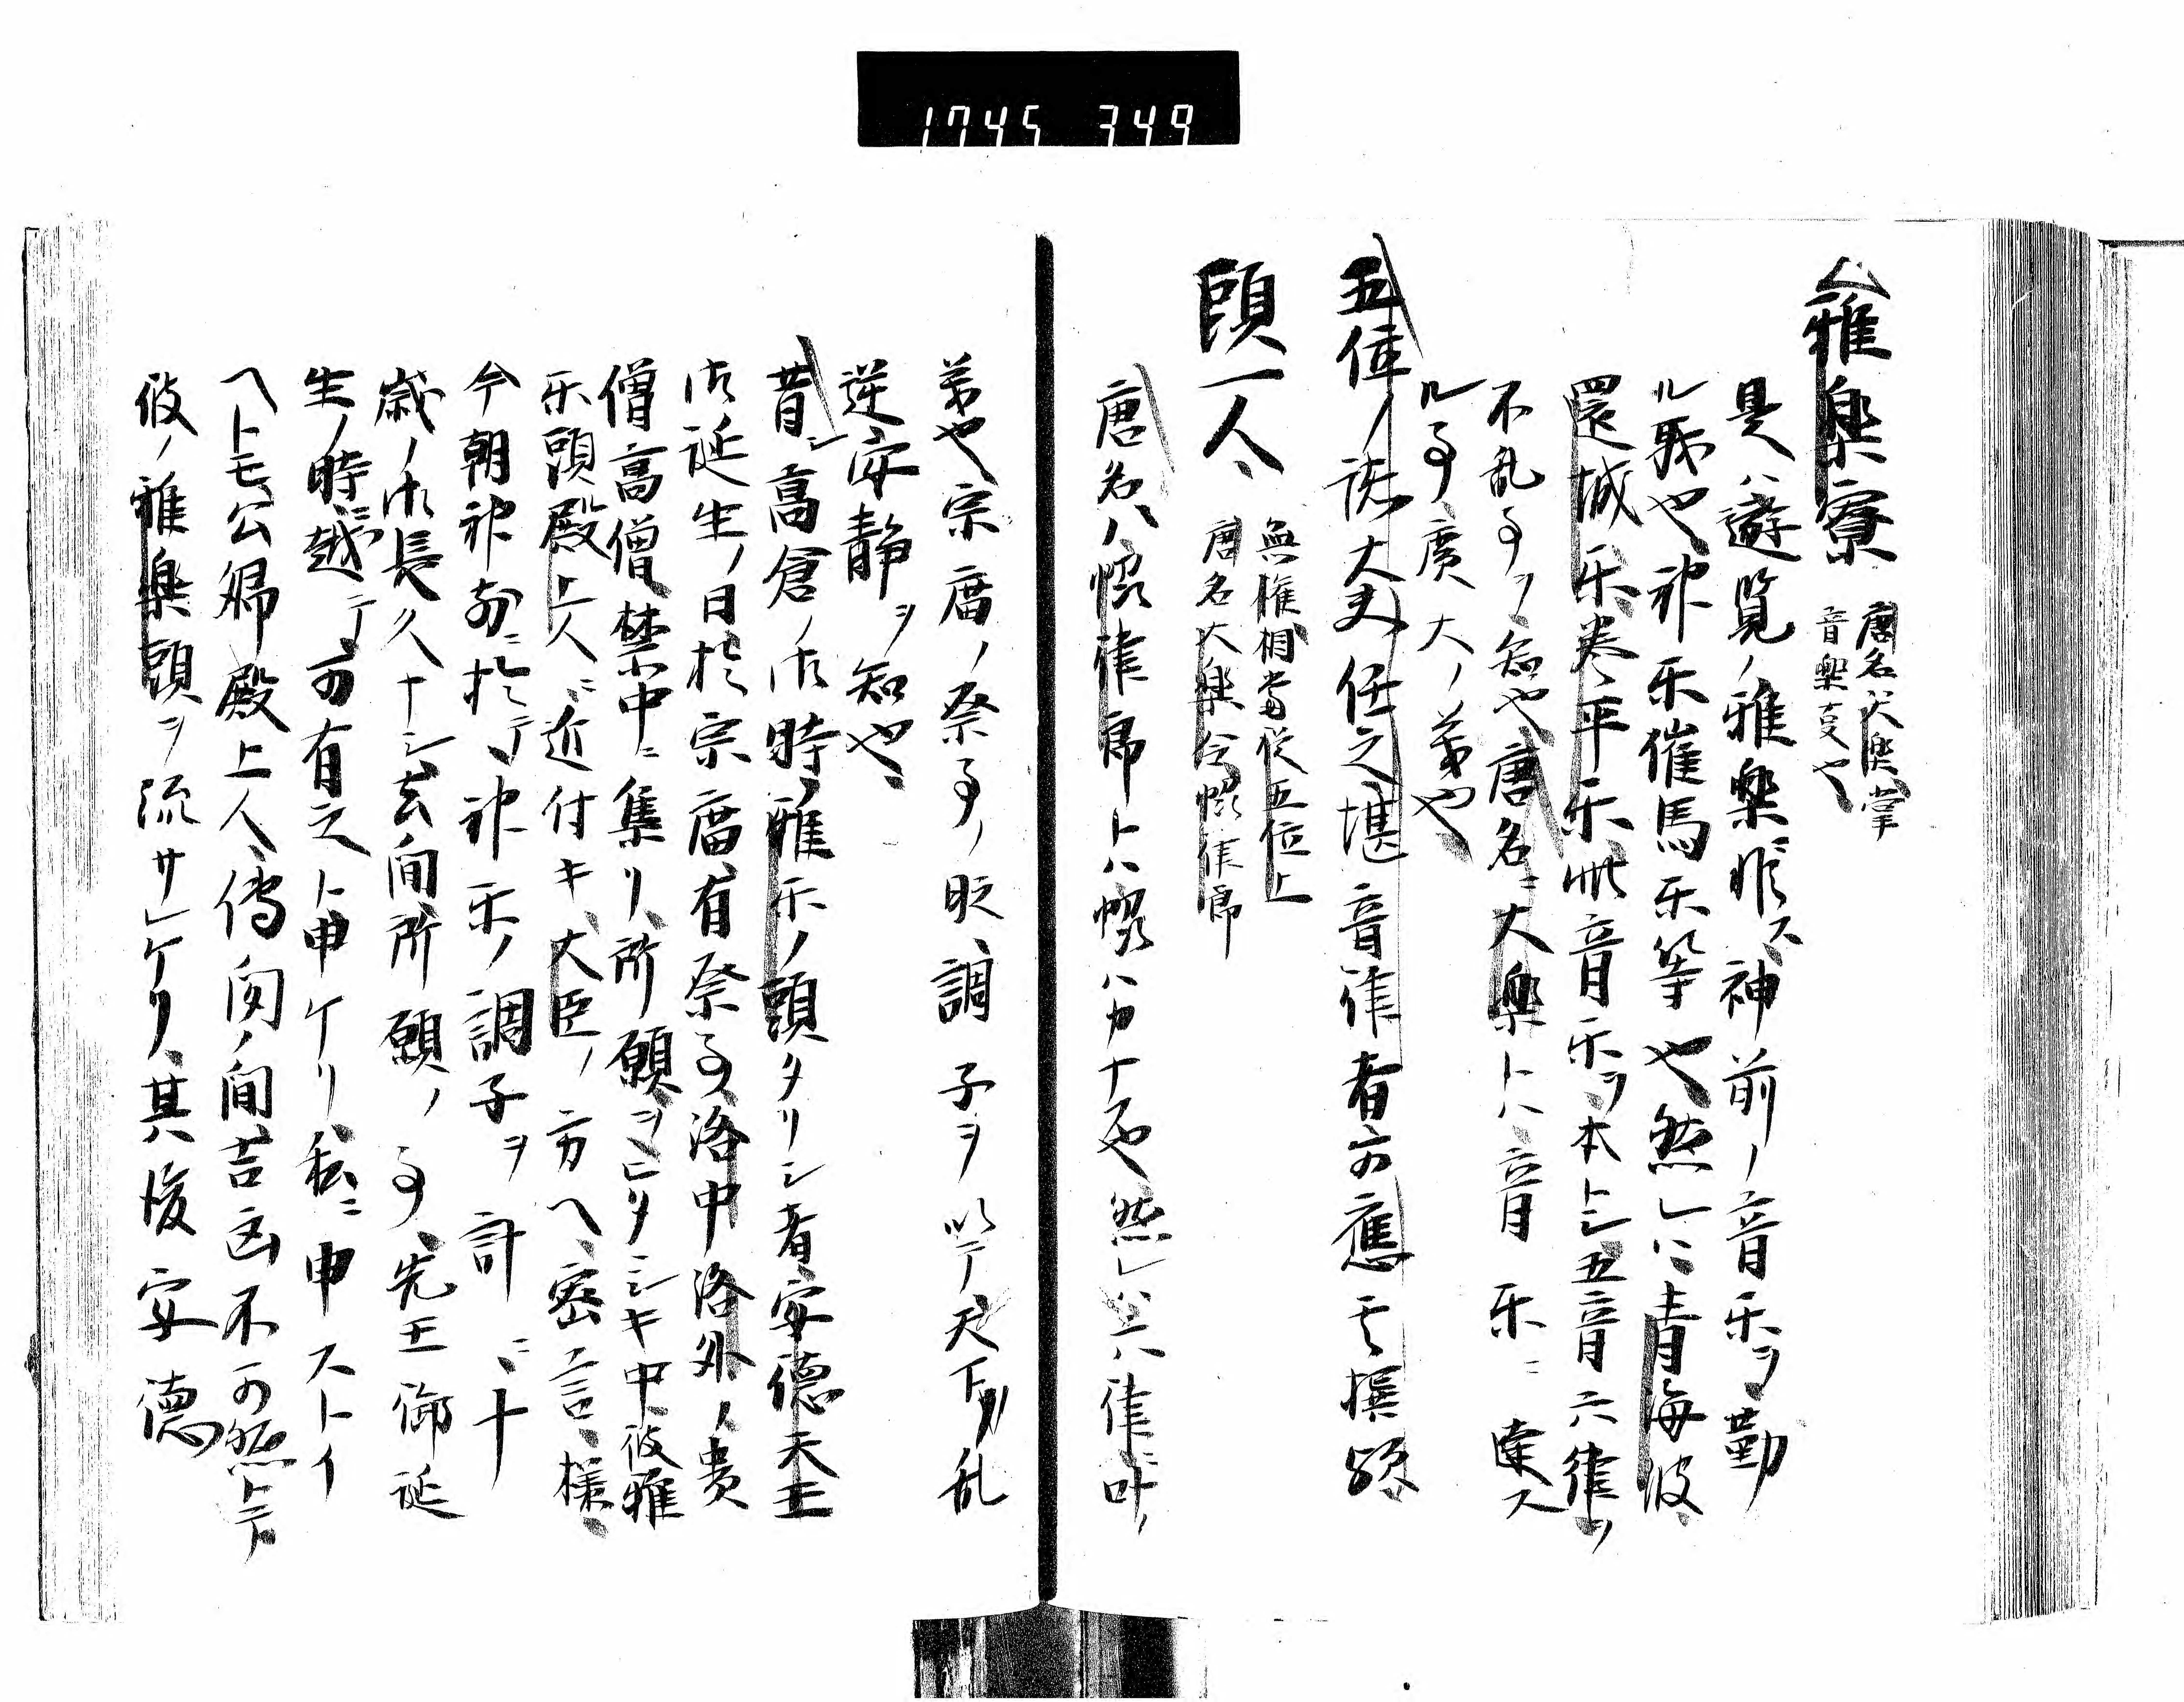 1745 349
雅楽寮 唐名大楽掌
音楽事也
是ハ遊覧ノ雅楽ニ非ス神前ノ音楽ヲ勤
ル職也神楽催馬楽等也然レハ青海波
還城楽泰平楽此音楽ヲ本トシ五音六律ヲ
不乱事ヲ知也唐名ニ大楽トハ音楽ニ達ス
ル事広大ノ義也
五位ノ諸大夫任之堪音律者可應其撰歟
頭一人 無権相当従五位上
唐名大楽令協律郎
唐名ハ協律郎トハ協ハカナフ也然レハ六律叶ノ
義也宗庿ノ祭事ノ時調子ヲ以テ天下ノ乱
逆安静ヲ知也
昔シ高倉ノ御時雅楽ノ頭タリシ者安徳天王
御延生ノ日於宗庿有祭事洛中洛外ノ貴
僧高僧禁中ニ集リ所願ヲ
シキ中彼雅
楽頭殿上人ニ近付キ大臣ノ方ヘ密言様
今朝神前ニ於テ神楽ノ調子ヲ計ニ十
歳ノ御長久ナシ去間所願ノ事先王御延
生ノ時ニ越テ可有之ト申ケリ私ニ申ストイ
ヘトモ公卿殿上人傳聞ノ間吉凶不可然トテ
彼ノ雅楽頭ヲ流サレケリ其後安徳